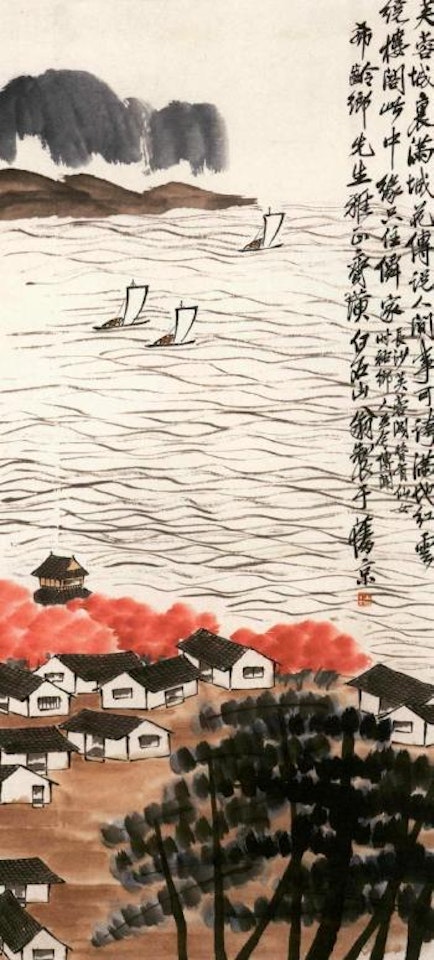 芙蓉城裏滿城花傳說人間事可誇滿地紅雲
繞樓閣此中緣只住僊家
長沙芙蓉閣嘗有仙女
鄉人傳聞
希齡鄉先生雅正齊璜白石山翁製于舊京